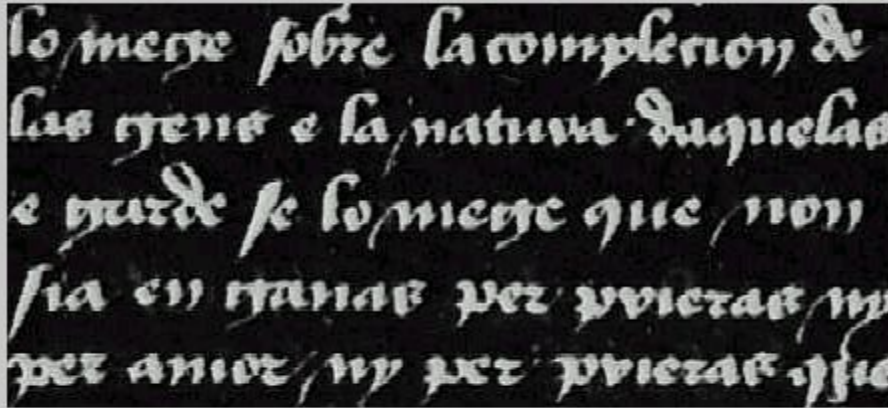 lo mege sobre la complecion de
las gens e la natura daquelas
e garde se lo mege que non
sia en ganas per pricras ny
per amor ny per pricras que